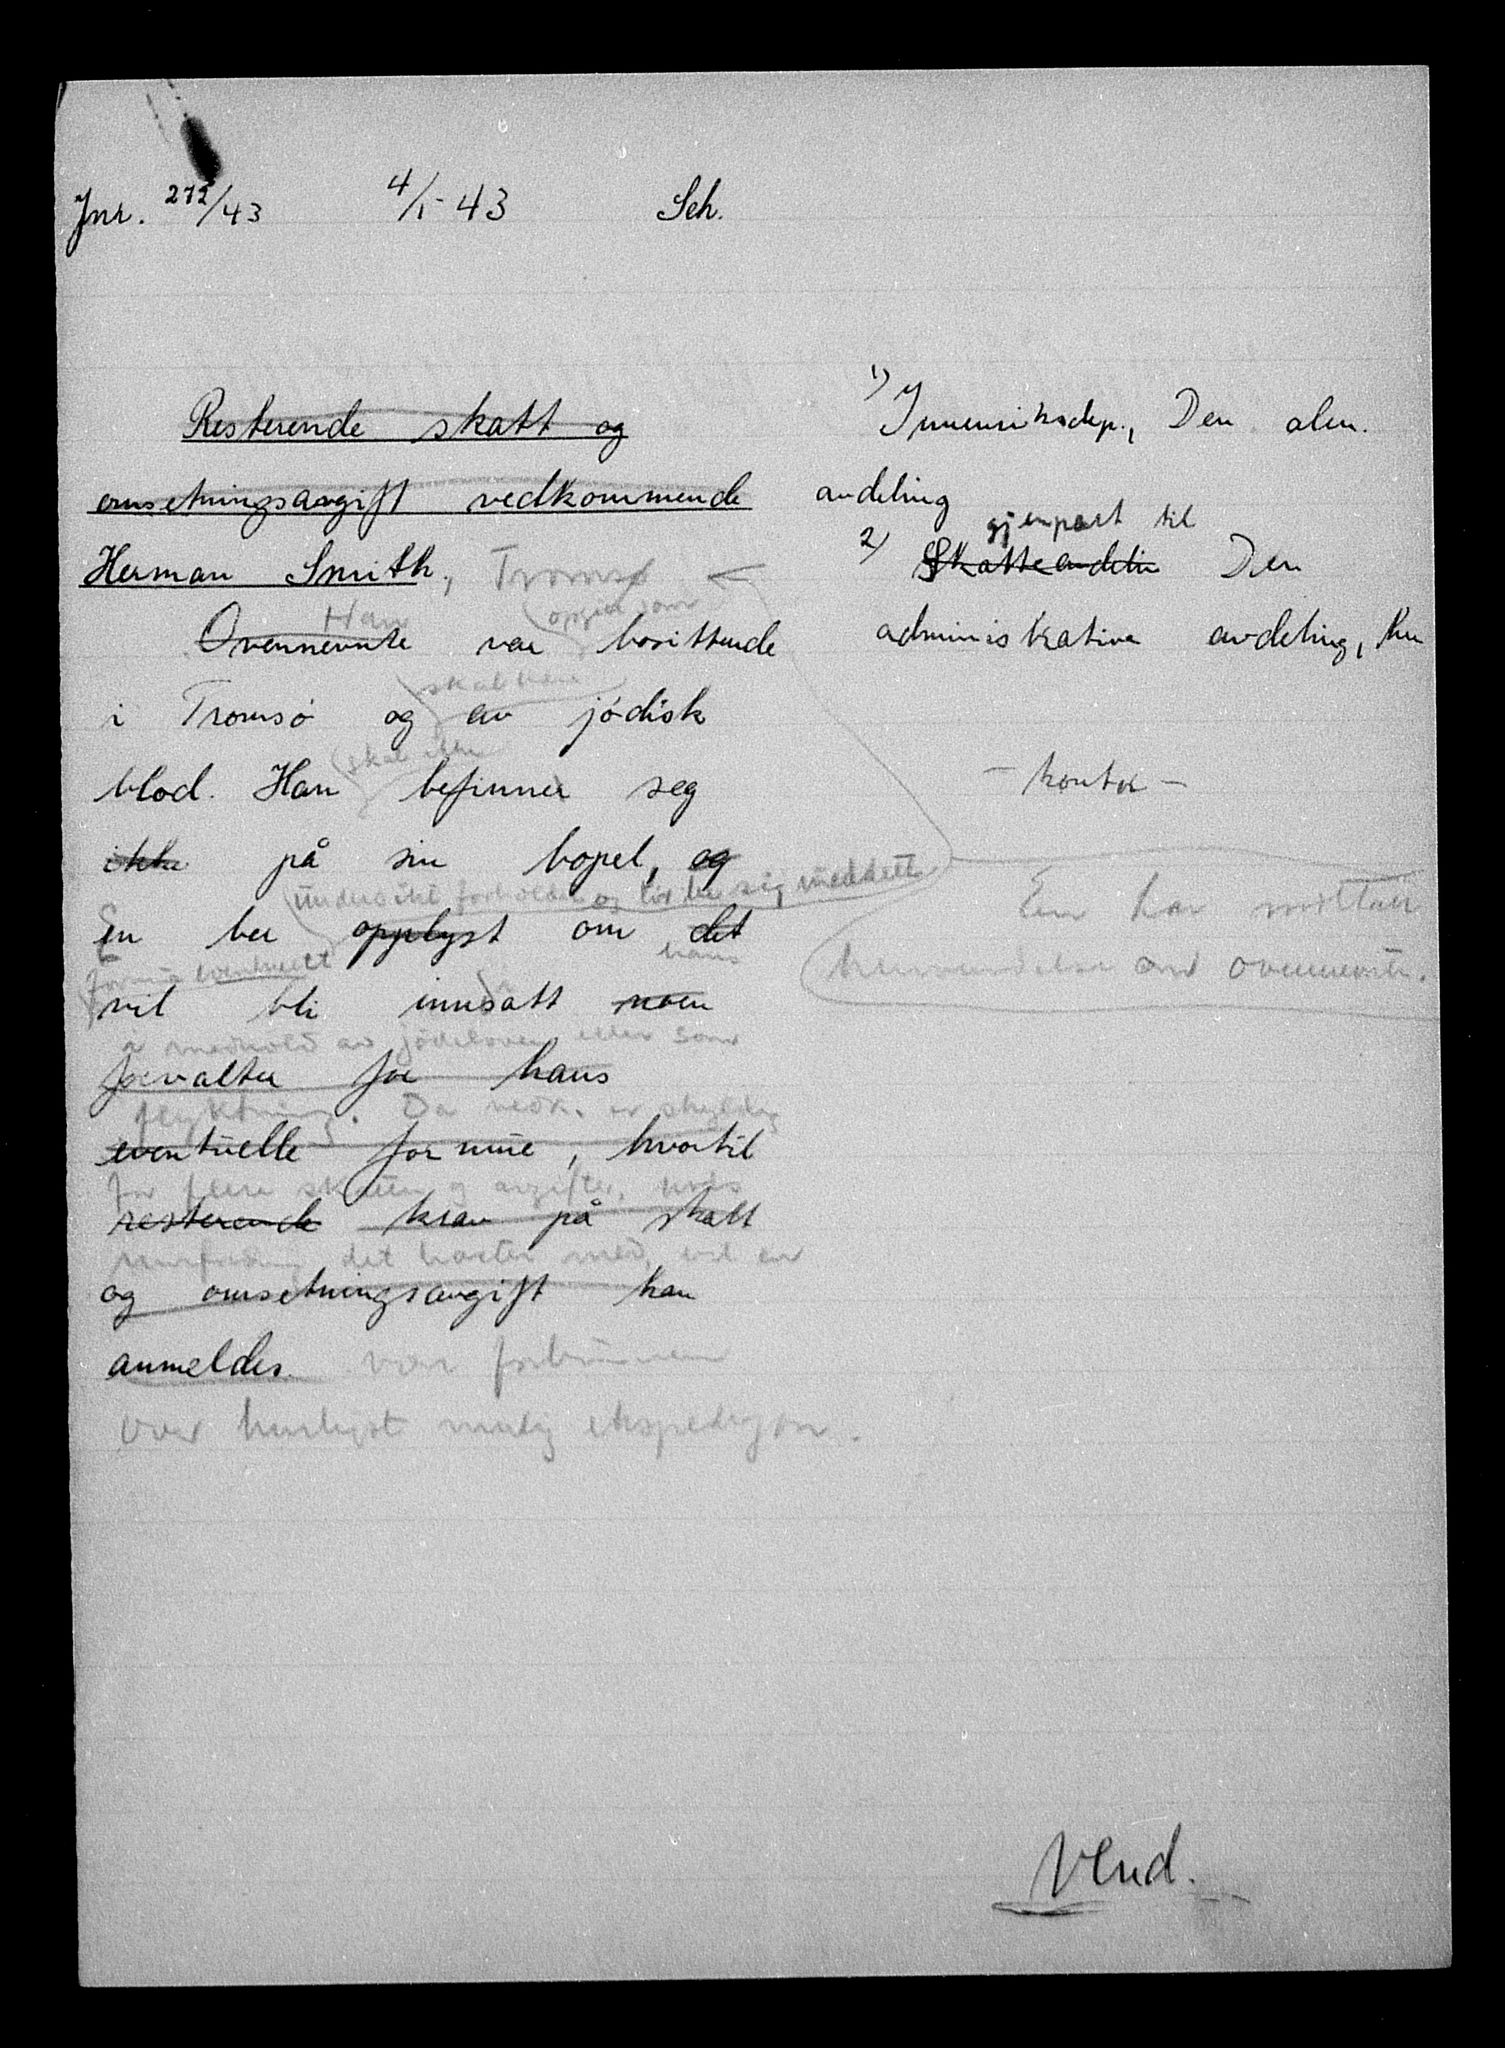 Jnr. 272/43 4/1-43 Sch.
Resterende skatt og
omsetningsavgift vedkommende
Herman Smith, Tromsø
Han oppgis som
Ovennevnte var bosittende
skal være
i Tromsø og av jødisk
skal ikke
blod. Han befinner seg
ikke på sin bopel, og
undersøkt forholdet og bli meddelt
En ber opplyst om det
hans
formue eventuelt
vil bli innsatt noen
i medhold av jødeloven eller som
forvalter for hans
flyktning. Da vedk. er skyldig
eventuelle formue, hvortil
for flere skatter og avgifter,
resterende krav på skatt
det haster med, vil en
og omsetningsavgift kan
anmeldes. være forbunnen
over hurligst mulig ekspedisjon.
1) Innenriksdep., Den alm.
avdeling
gjenpart til
2) Skatteavdelin Den
administrative avdeling, her
- kontor -
En har mottatt
henvendelse om ovennevnte.
Vend.